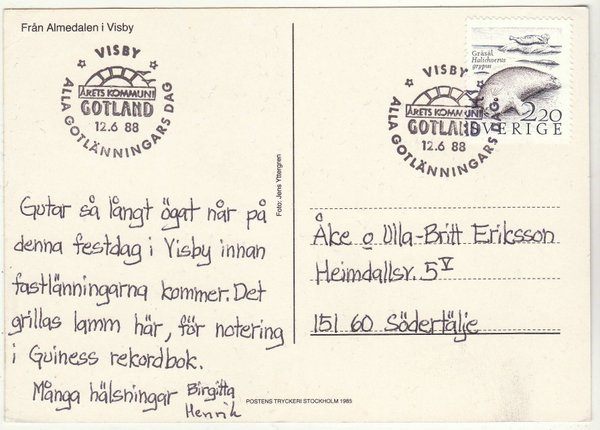 Från Almedalen i Visby
VISBY
ÅRETS KOMMUN
GOTLAND
12.6 88
ALLA GOTLÄNNINGARS DAG
Gutar så långt ögat når på
denna festdag i Visby innan
fastlänningarna kommer. Det
grillas lamm här, för notering
i Guiness rekordbok.
Många hälsningar Birgitta
Henrik
Foto: Jens Yttergren
POSTENS TRYCKERI STOCKHOLM 1985
Gråsäl
Halichoerus
grypus
2.20
SVERIGE
VISBY
ÅRETS KOMMUN
GOTLAND
12.6 88
ALLA GOTLÄNNINGARS DAG
Åke o Ulla-Britt Eriksson
Heimdallsv. 5 V
151 60 Södertälje